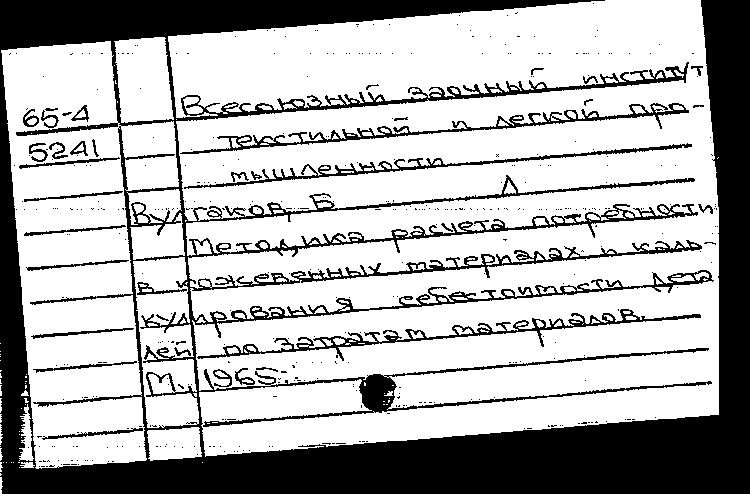 65-4 Всесоюзный заочный институт
5241 текстильной и легкой про-
мышленности
Булгаков, Б Л
Методика расчета потребности
в кожевенных материалах и каль-
кулирования себестоимости дета
лей по затратам материалов.
М., 1965.